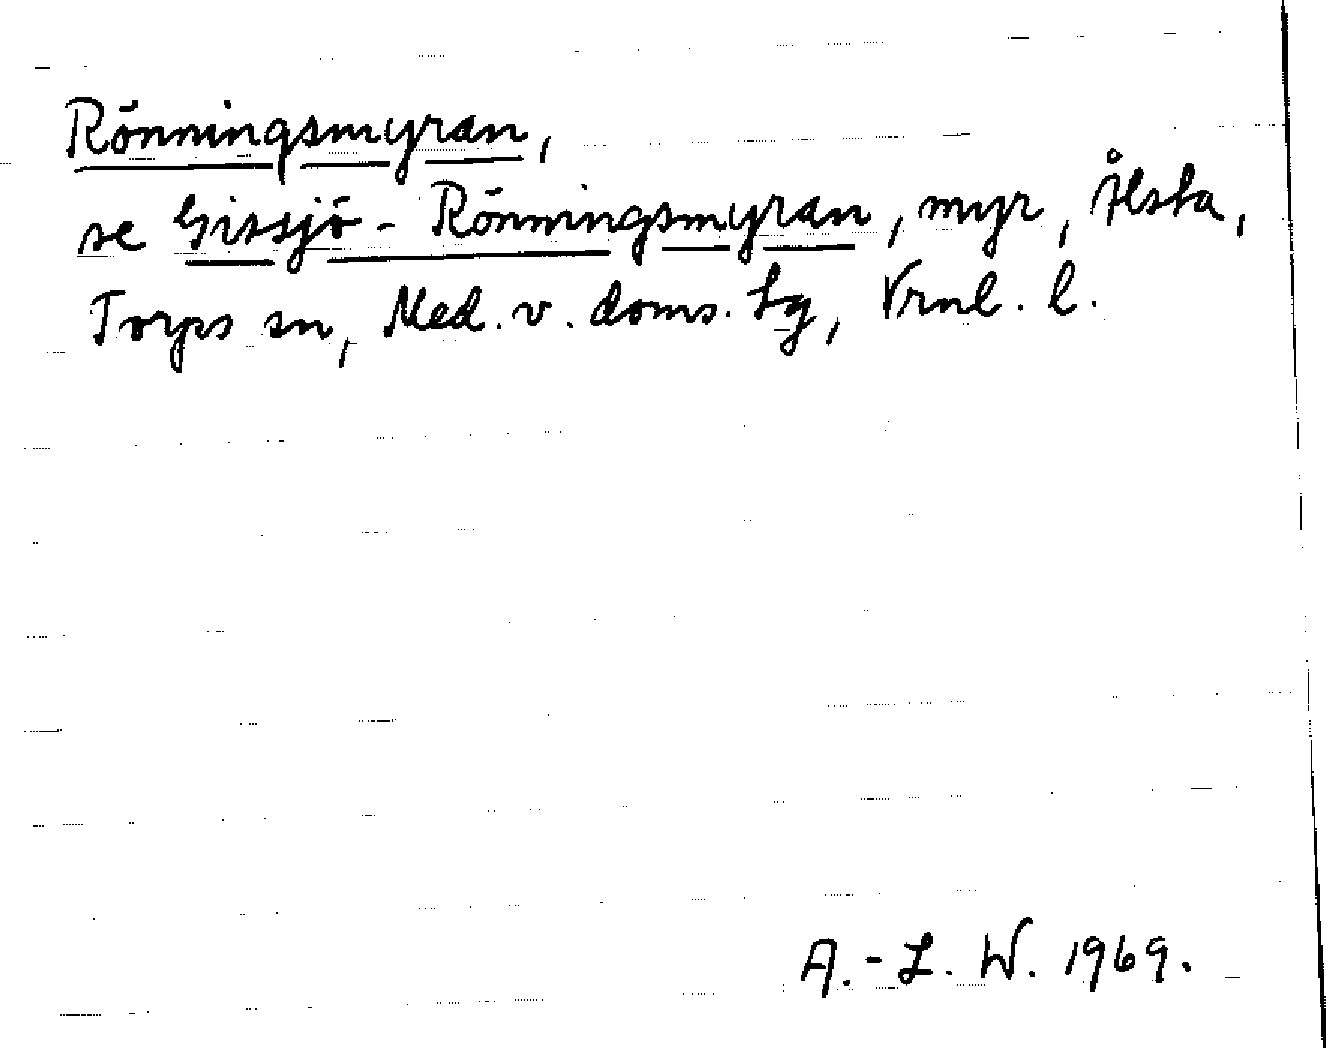 Rönningsmyran,
se Gissjö-Rönningsmyran, myr, Ålsta,
Torps sn, Med. v. doms. tg, Vrnl. l.
A.-L. W. 1969.